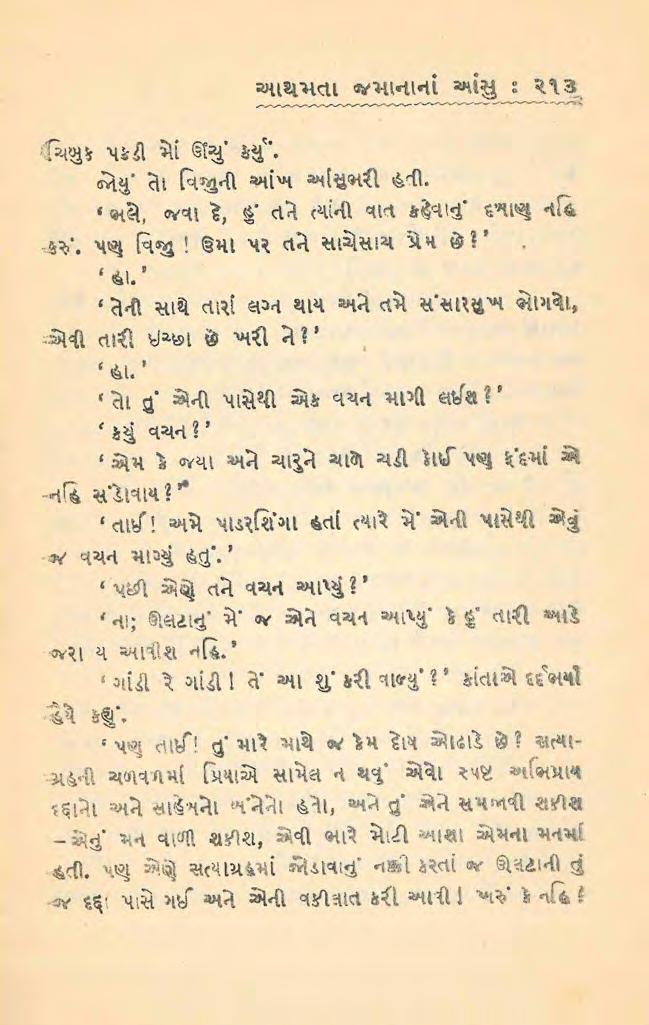 આથમતા જમાનાનાં આંસુ : ૨૧૩
ચિબુક પકડી મોં ઊંચું કર્યું.
જોયું તો વિજુની આંખ આંસુભરી હતી.
‘ભલે, જવા દે, હું તને ત્યાંની વાત કહેવાનું દબાણ નહિ
કરું. પણ વિજુ ! ઉમા પર તને સાચેસાચ પ્રેમ છે ?’
‘હા.’
‘તેની સાથે તારાં લગ્ન થાય અને તમે સંસારસુખ ભોગવો,
એવી તારી ઇચ્છા છે ખરી ને ?’
‘હા.’
‘તો તું એની પાસેથી એક વચન માગી લઈશ ?’
‘કયું વચન ?’
‘એમ કે જયા અને ચારુને ચાળે ચડી કોઈ પણ ફંદમાં એ
નહિ સંડોવાય ?’
‘તાઈ ! અમે પાડરશિંગા હતાં ત્યારે મેં એની પાસેથી એવું
જ વચન માગ્યું હતું.’
‘પછી એણે તને વચન આપ્યું ?’
‘ના; ઊલટાનું મેં જ એને વચન આપ્યું કે હું તારી આડે
જરા ય આવીશ નહિ.’
‘ગાંડી રે ગાંડી ! તેં આ શું કરી વાળ્યું ?’ કાંતાએ દર્દભર્યા
હૈયે કહ્યું.
‘પણ તાઈ ! તું મારે માથે જ કેમ દોષ ઓઢાડે છે ? સત્યા-
ગ્રહની ચળવળમાં પ્રિયાએ સામેલ ન થવું એવો સ્પષ્ટ અભિપ્રાય
દદ્દાનો અને સાહેબનો બંનેનો હતો, અને તું એને સમજાવી શકીશ
–એનું મન વાળી શકીશ, એવી ભારે મોટી આશા એમના મનમાં
હતી. પણ એણે સત્યાગ્રહમાં જોડાવાનું નક્કી કરતાં જ ઊલટાની તું
જ દદ્દા પાસે ગઈ અને એની વકીલાત કરી આવી ! ખરું કે નહિ ?